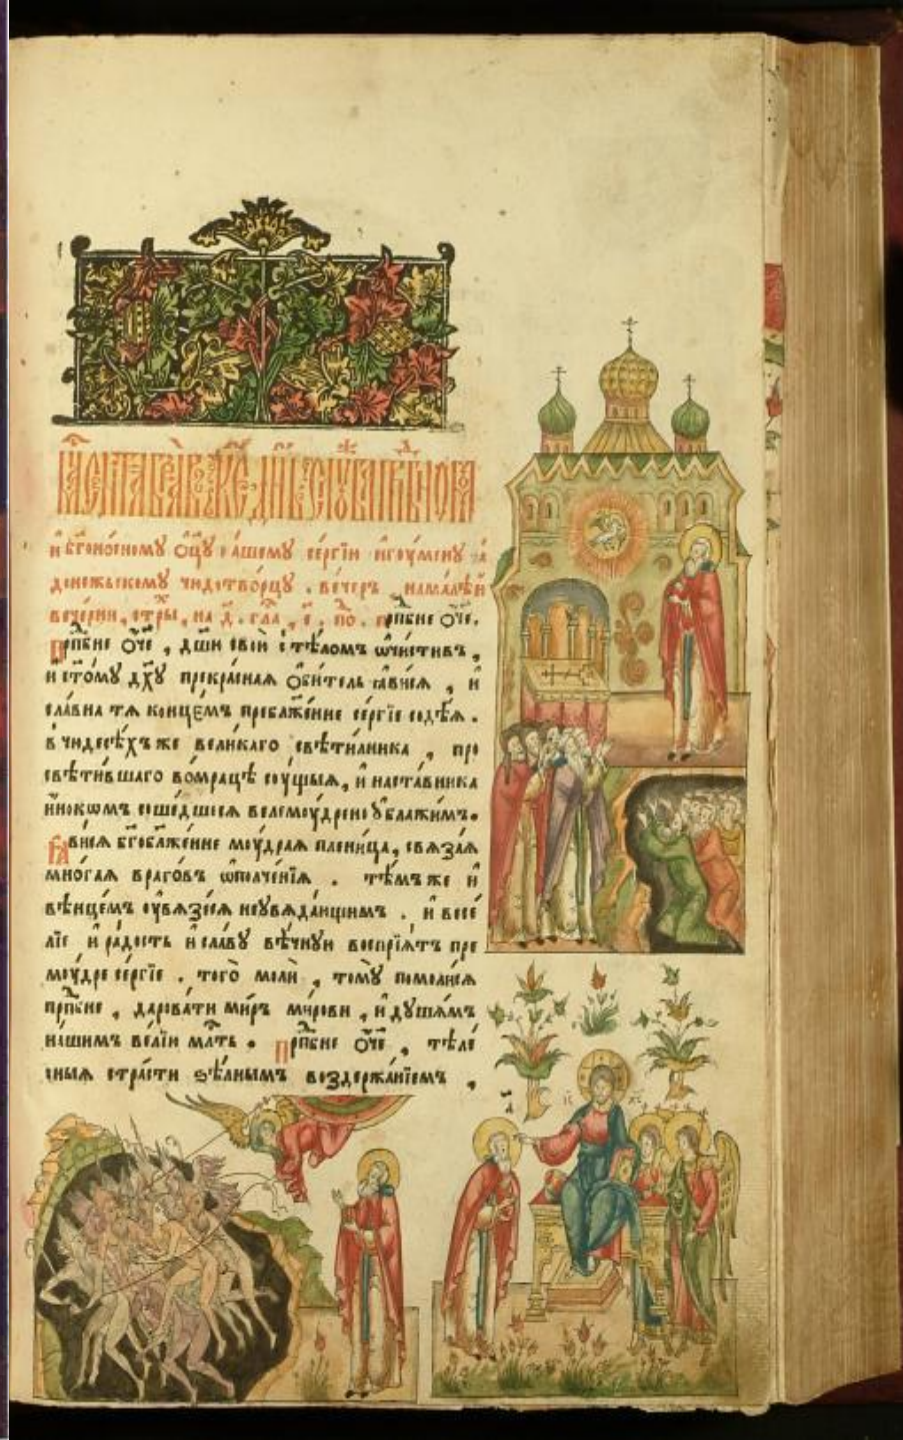 М҃ца сентѧбрѧ въ к҃е. д҃нь слꙋжба прп҃бномꙋ
и҆ бг҃оно́сномꙋ ѻ҆ц҃ꙋ на́шемꙋ се́ргїи и҆гоу́менꙋ ра
донежьскомꙋ чюдотво́рцꙋ . ве́черъ . нама́лѣй
вече́рни, стры̑, на д҃. гла̑, е҃. по̑. прпⷣбне ѻ҆́ч҃е.
Прпⷣбне ѻ҆́ч҃е , дш҃и свой с тѣ́ломъ ѡ҆чи́стивъ ,
и҆ ст҃о́мꙋ дх҃ꙋ прекра́сная ѻ҆би́тель ꙗ҆ви́ся , и҆
сла́вна тѧ конце́мъ пребл҃же́нне се́ргїе содѣ́я .
в чюдесѣ́хъ же вели́каго свѣти́лника , про
свѣти́вшаго во́мрацѣ соу́щыя, и҆ наста́вника
и҆́нокѡмъ соше́дшося велемоу́дрено ᲂу҆блажи́мъ.
Ꙗ҆ви́ся бг҃обл҃же́нне моу́драя плени́ца, связа́я
мно́гая враго́въ ѡ҆полче́нїя . тѣ́мъ же и҆
вѣнце́мъ ᲂу҆вязе́ся неꙋвяда́ющимъ . и҆ весе́
лїе и҆ ра́дость и҆ сла́вꙋ вѣ́чнꙋи воспрїя́тъ пре
моу́дре се́ргїе . того̀ моли̑ , томꙋ̀ помоли́ся
прпⷣбне , дарова́ти ми́ръ ми́рови , и҆ дꙋша́мъ
на́шимъ ве́лїи млⷭть . Прпⷣбне ѻ҆́ч҃е , тѣле́
сныя стра́сти ѕѣ́лнымъ воздержа́нїемъ ,
І҃С Х҃С